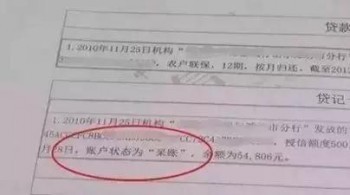 贷款
1.2010年11月25日机构“
市分行”
，农户联保，12期，按月归还，截至201
贷记
1.2010年11月25日机构“
市分行”发放的
，授信额度500
月28日，账户状态为“呆账”，余额为54,806元。